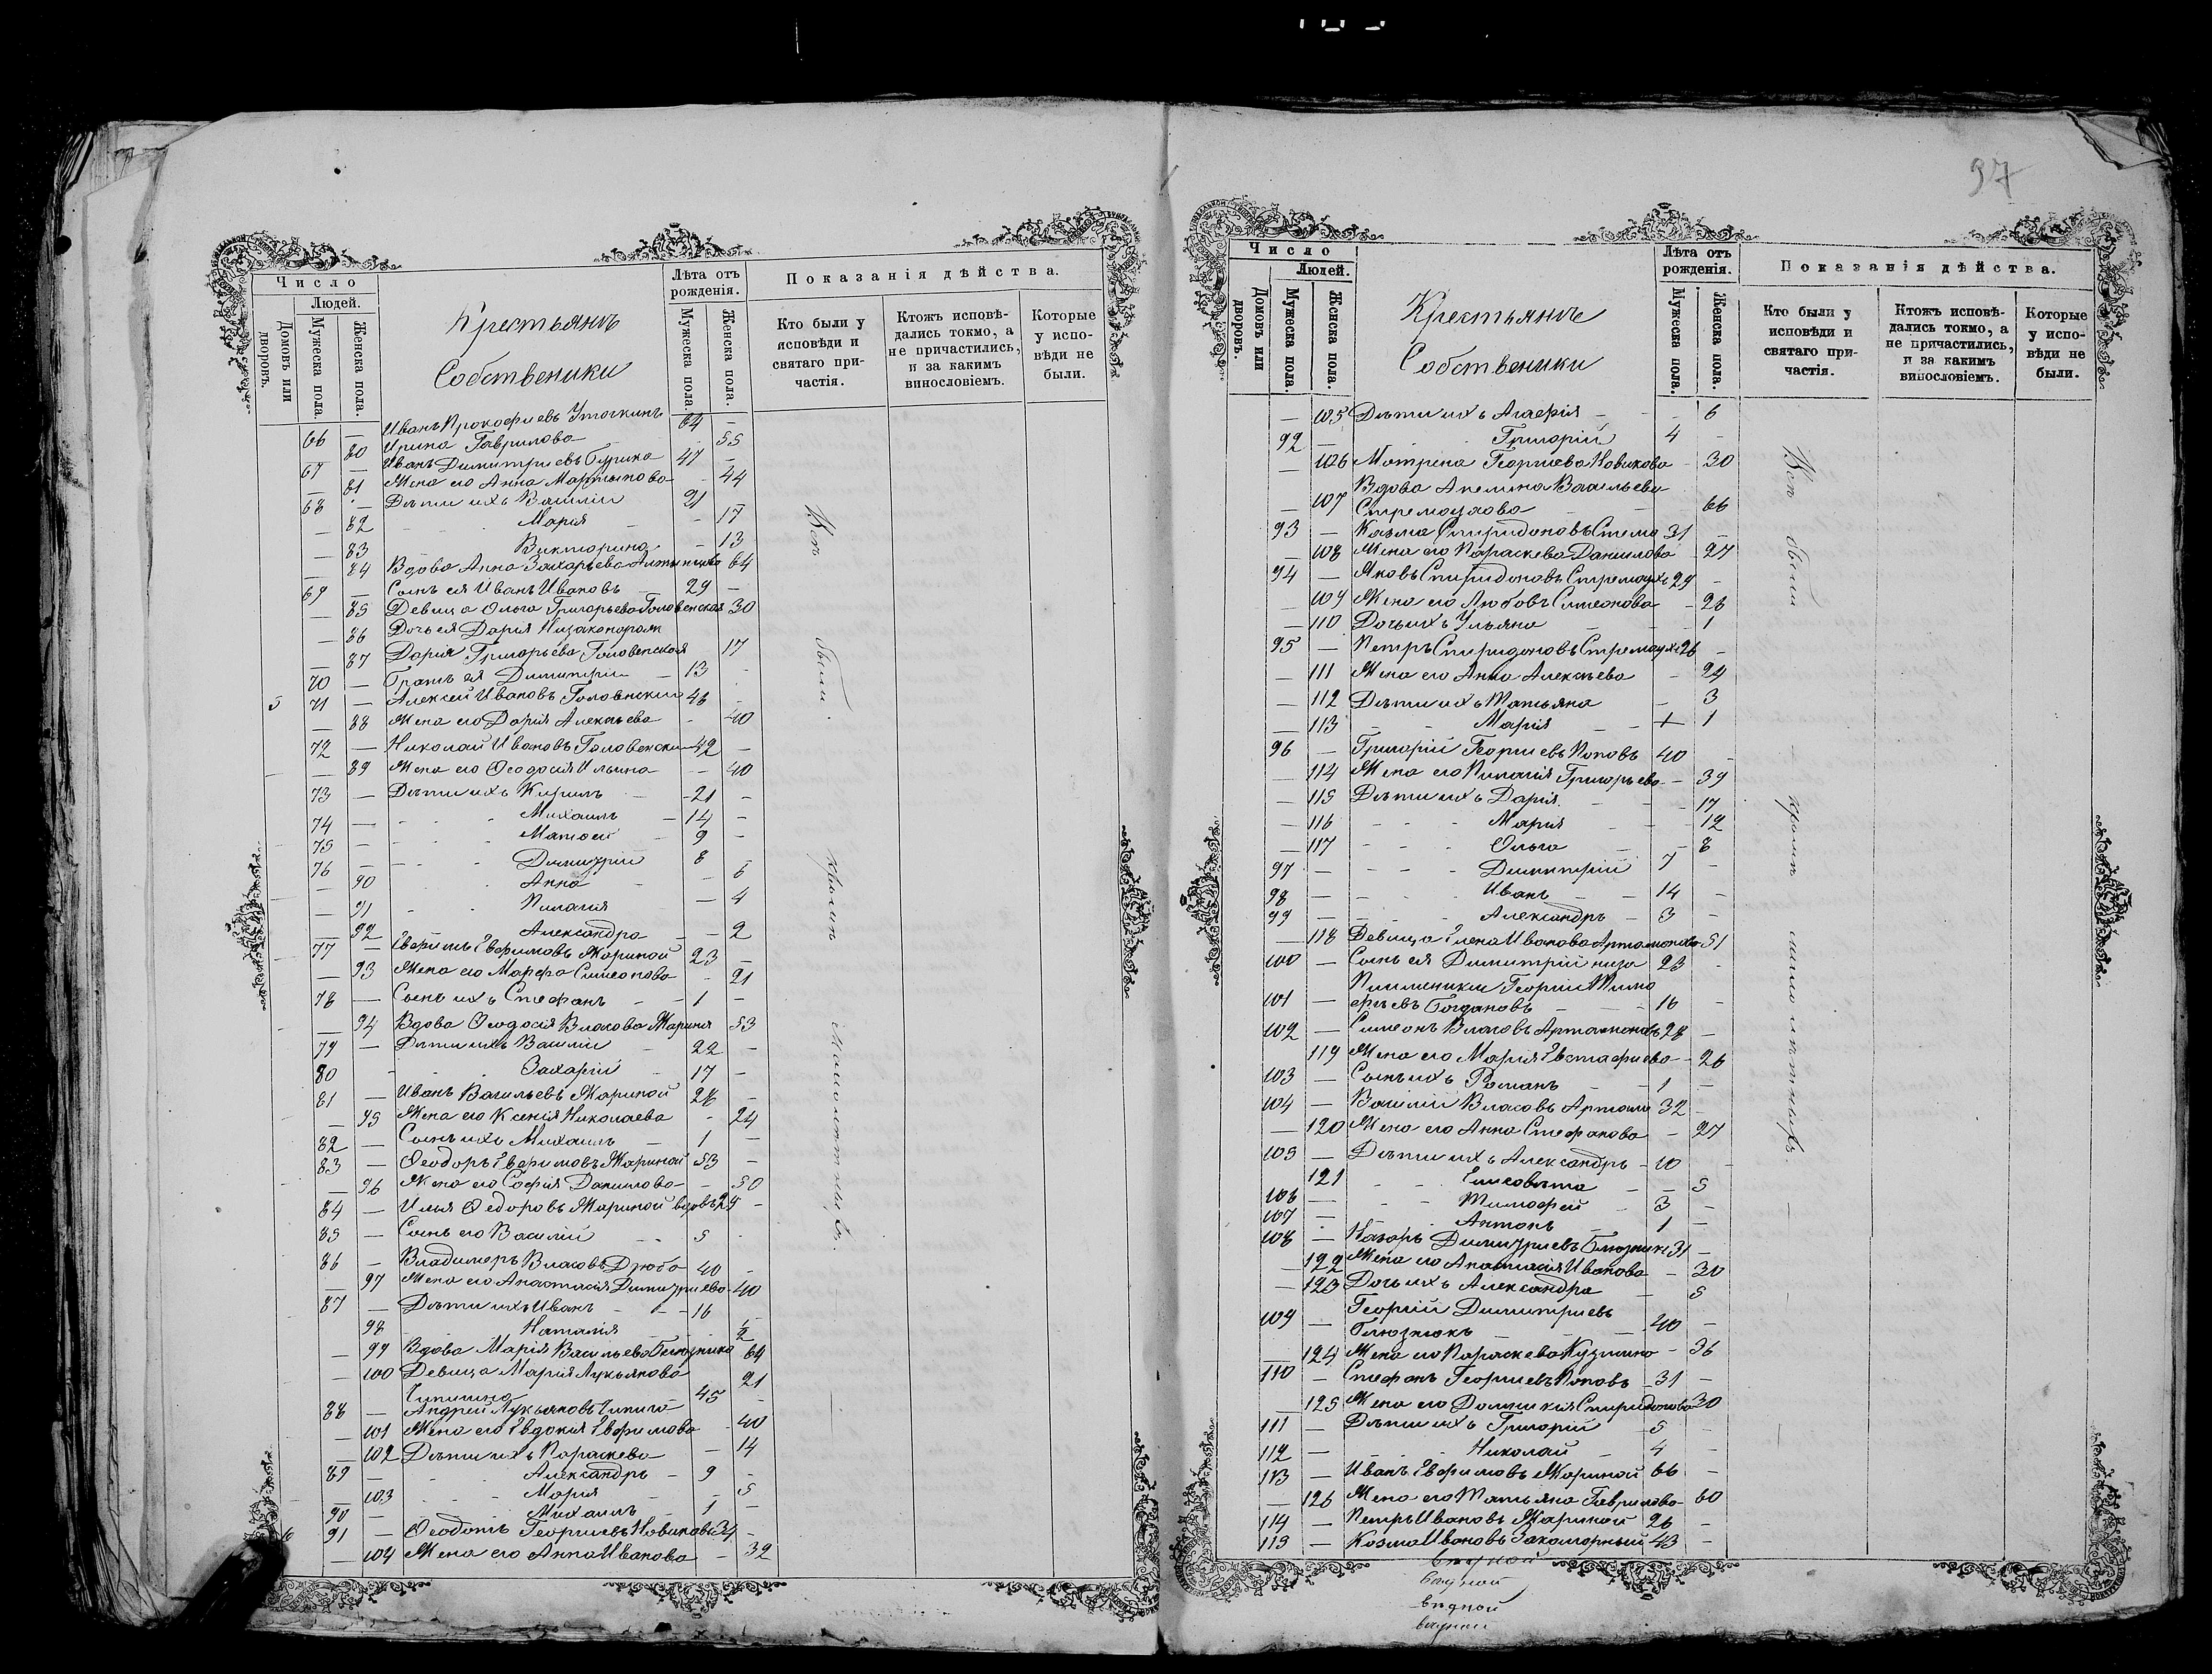 97
Число
Людей.
Домовъ или дворовъ.
Мужеска пола.
Женска пола.
Крестьянъ
Собственики
Лѣта отъ рожденія.
Мужеска пола
Женска пола.
Показанія дѣйства.
Кто были у исповѣди и святаго причастія.
Ктожъ исповѣдались токмо, а не причастились, и за какимъ винословіемъ.
Которые у исповѣди не были.
66 — Иванъ Прокофіевъ Уточкинъ 64 —
80 Ирина Гаврилова 55
67 — Иванъ Димитріевъ 47 —
— 81 Жена его Анна Мартынова - 44
68 — Дѣти ихъ Василій 21 —
— 82 Марія — 17
— 83 Викторина — 13
— 84 Вдова Анна Захарьева 64
69 — Сынъ ея Иванъ Ивановъ 29 —
— 85 Девица Ольга Григорьева Головенская 30
— 86 Дочь ея Дарія
— 87 Дарія Григорьева Головенская 17
70 — Братъ ея Димитрій — 13
5 71 — Алексей Ивановъ Головенский 46
— 88 Жена его Дарія Алексѣева - 40
72 — Николай Ивановъ Головенски 42 —
— 89 Жена его Ѳеодосія Ильина — 40
73 — Дѣти ихъ Кирилъ - 21 —
74 — Михаилъ — 14 —
75 — Матѳей 9 —
76 — Димитрій 8
— 90 Анна 6
— 91 Пилагія — 4
— 92 Александра — 2
77 — Ефимъ Ефимовъ Жариной 23 —
— 93 Жена его Марфа Симеонова 21
78 — Сынъ ихъ Стефанъ - 1 —
— 94 Вдова Ѳеодосія Власова 53
79 — Дѣти ихъ Василій 22 —
80 Захарій 17 —
81 — Иванъ Васильевъ Жариной 28 —
— 95 Жена его Ксенія Николаева - 24
82 — Сынъ ихъ Михаилъ 1 —
83 — Ѳеодоръ Ефимовъ Жариной 53 —
— 96 Жена его Софія Данилова 50
84 — Илья Ѳедоровъ Жариной вдовъ 29 —
85 — Сынъ его Василій 5
86 — Владимеръ Власовъ Дзюба 40 —
— 97 Жена его Анастасія Димитріева 40
87 — Дѣти ихъ Иванъ - 16
98 Наталія 2
— 99 Вдова Марія Васильева 64
— 100 Девица Марія Лукьянова
21
88 — Андрей Лукьяновъ 45 —
— 101 Жена его Евдокія Ефимова 40
— 102 Дѣти ихъ Параскева — 14
89 — Александръ — 9 —
— 103 Марія — 5
90 — Михаилъ 1 —
6 91 — Ѳеодотъ Георгиевъ Новиковъ 34 —
— 104 Жена его Анна Иванова — 32
Всѣ были. кромѣ малолѣтныхъ.
Число
Людей.
Домовъ или дворовъ.
Мужеска пола.
Женска пола.
Крестьянъ
Собственики
Лѣта отъ рожденія.
Мужеска пола.
Женска пола.
Показанія дѣйства.
Кто были у исповѣди и святаго причастія.
Ктожъ исповѣдались токмо, а не причастились, и за какимъ винословіемъ.
Которые у исповѣди не были.
— 105 Дѣти ихъ Агафія - 6
92 — Григорій 4 -
— 106 Мотрена Георгиева Новикова - 30
Вдова Васильева
— 107 Стремоухова 66
93 — Козма Спиридоновъ 31 —
— 108 Жена его Параскева Данилова - 27
94 — Яковъ Спиридоновъ Стремоухъ 29 -
— 109 Жена его Любовъ Симеонова - 28
— 110 Дочь ихъ Ульяна — 1
95 — Петръ Спиридоновъ Стремоухъ 26 —
— 111 Жена его Анна Алексѣева - 24
— 112 Дѣти ихъ Татьяна — 3
— 113 Марія — 1
96 — Григорій Георгиевъ Поповъ 40 —
— 114 Жена его Пилагія Григорьева — 39
— 115 Дѣти ихъ Дарія — 17
— 116 Марія — 12
— 117 Ольга — 8
97 — Димитрій 7 —
98 — Иванъ — 14 —
99 — Александръ — 3 —
— 118 Девица Елена Иванова Артамонова 51
100 — Сынъ ея Димитрій 23 -
Георгій Тимо
101 — феевъ Богдановъ — 16 —
102 — Симеонъ Власовъ Артамоновъ 28 —
119 Жена его Марія Евстафіева — 26
103 — Сынъ ихъ Романъ — 1 —
104 — Василій Власовъ Артамо 32 -
— 120 Жена его Анна Стефанова — 27
105 — Дѣти ихъ Александръ - 10
121 Елисовета — 5
106 — Тимофей 3 —
107 — Антонъ 1 —
108 — Назаръ Димитріевъ 31 —
— 122 Жена его Анастасія Иванова — 30
— 123 Дочь ихъ Александра — 5
Георгій Димитріевъ
109 — 40 —
— 124 Жена его Параскева Кузмина - 36
110 — Стефанъ Георгиевъ Поповъ - 31 —
— 125 Жена его Домникія Спиридонова 30
111 — Дѣти ихъ Григорій 5 —
112 — Николай — 4 —
113 — Иванъ Ефимовъ Жариной 66 —
— 126 Жена его Татьяна Гаврилова 60
114 — Петръ Ивановъ Жариной 26 —
115 — Козма Ивановъ 43 —
Всѣ были — кромѣ малолѣтныхъ.